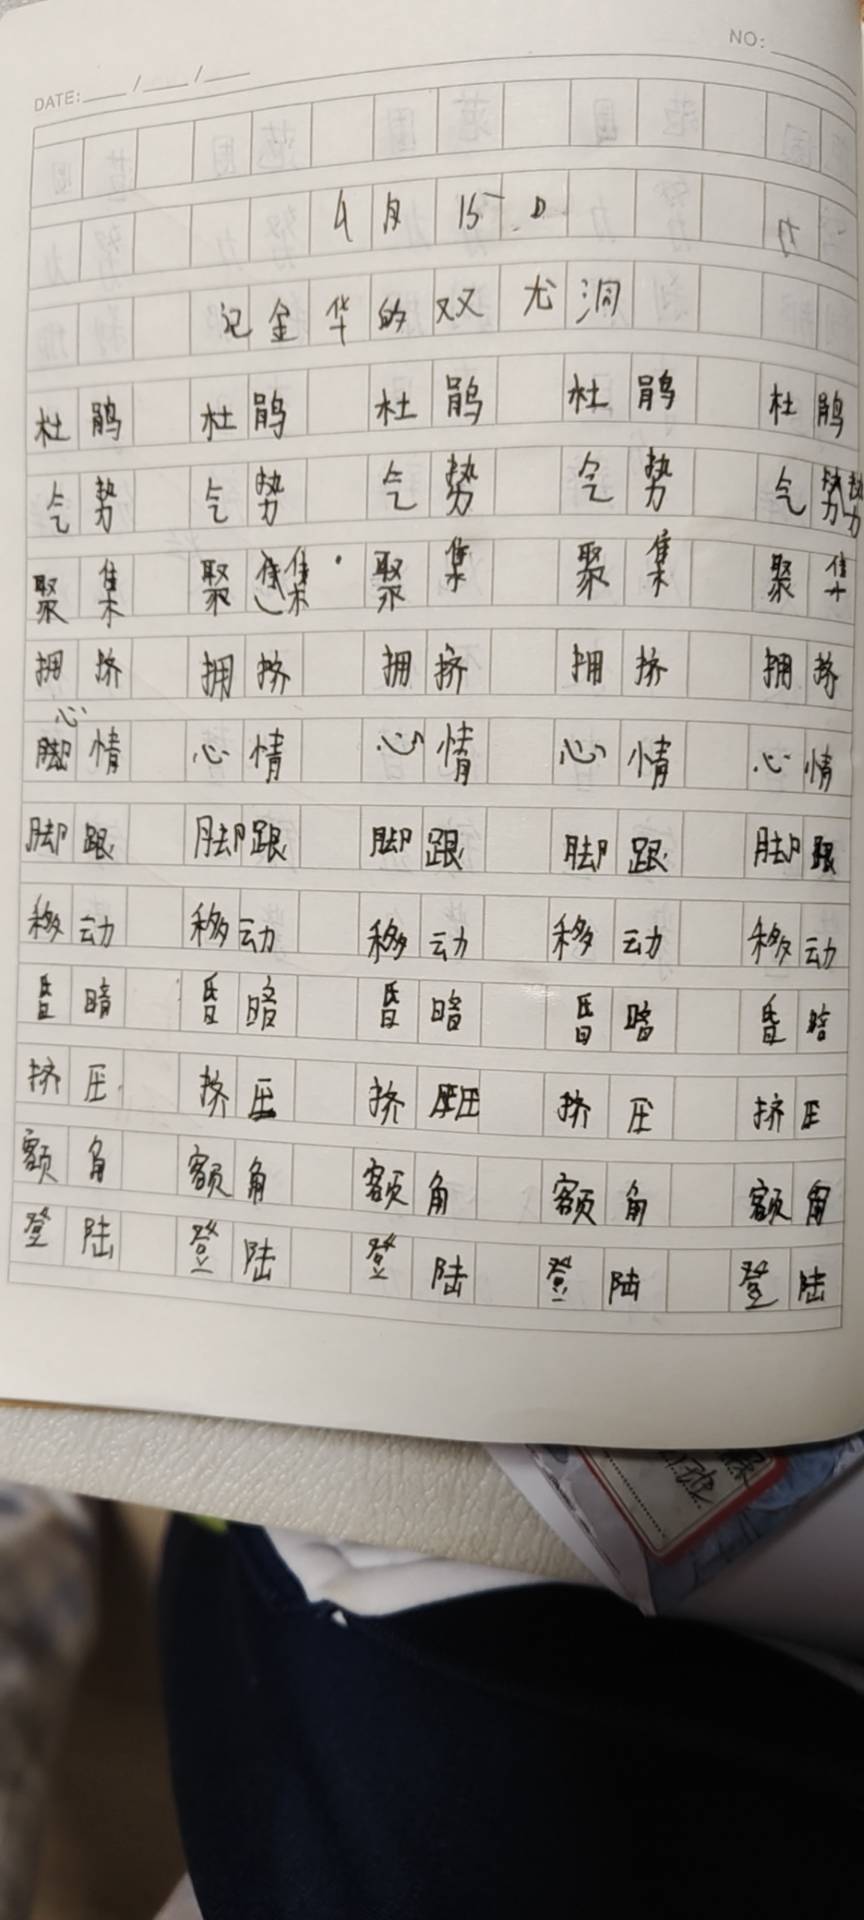 NO:
DATE: / /
4月15日
记金华的双龙洞
杜鹃 杜鹃 杜鹃 杜鹃 杜鹃
气势 气势 气势 气势 气势
聚集 聚集 聚集 聚集 聚集
拥挤 拥挤 拥挤 拥挤 拥挤
心情 心情 心情 心情 心情
脚跟 脚跟 脚跟 脚跟 脚跟
移动 移动 移动 移动 移动
昏暗 昏暗 昏暗 昏暗 昏暗
挤压 挤压 挤压 挤压 挤压
额角 额角 额角 额角 额角
登陆 登陆 登陆 登陆 登陆